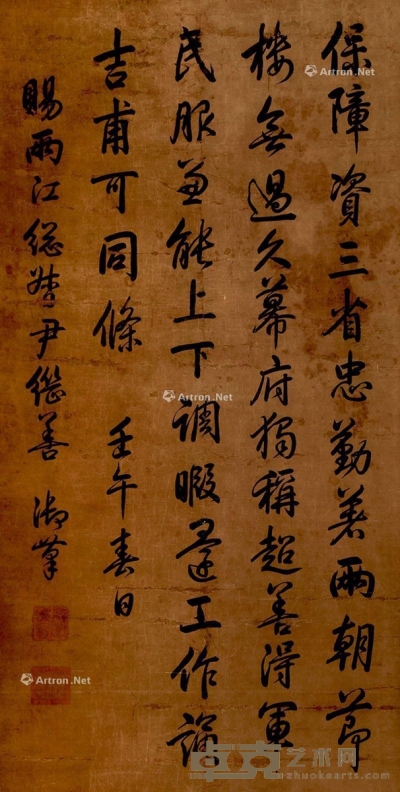 保障資三省忠勤著兩朝節
樓無過久幕府獨稱超善得軍
民服兼能上下調暇還工作誦
吉甫可同條 壬午春日
賜兩江總督尹繼善 御筆
Artron.Net
Artron.Net
Artron.Net
卓克艺术网
zhuokearts.com